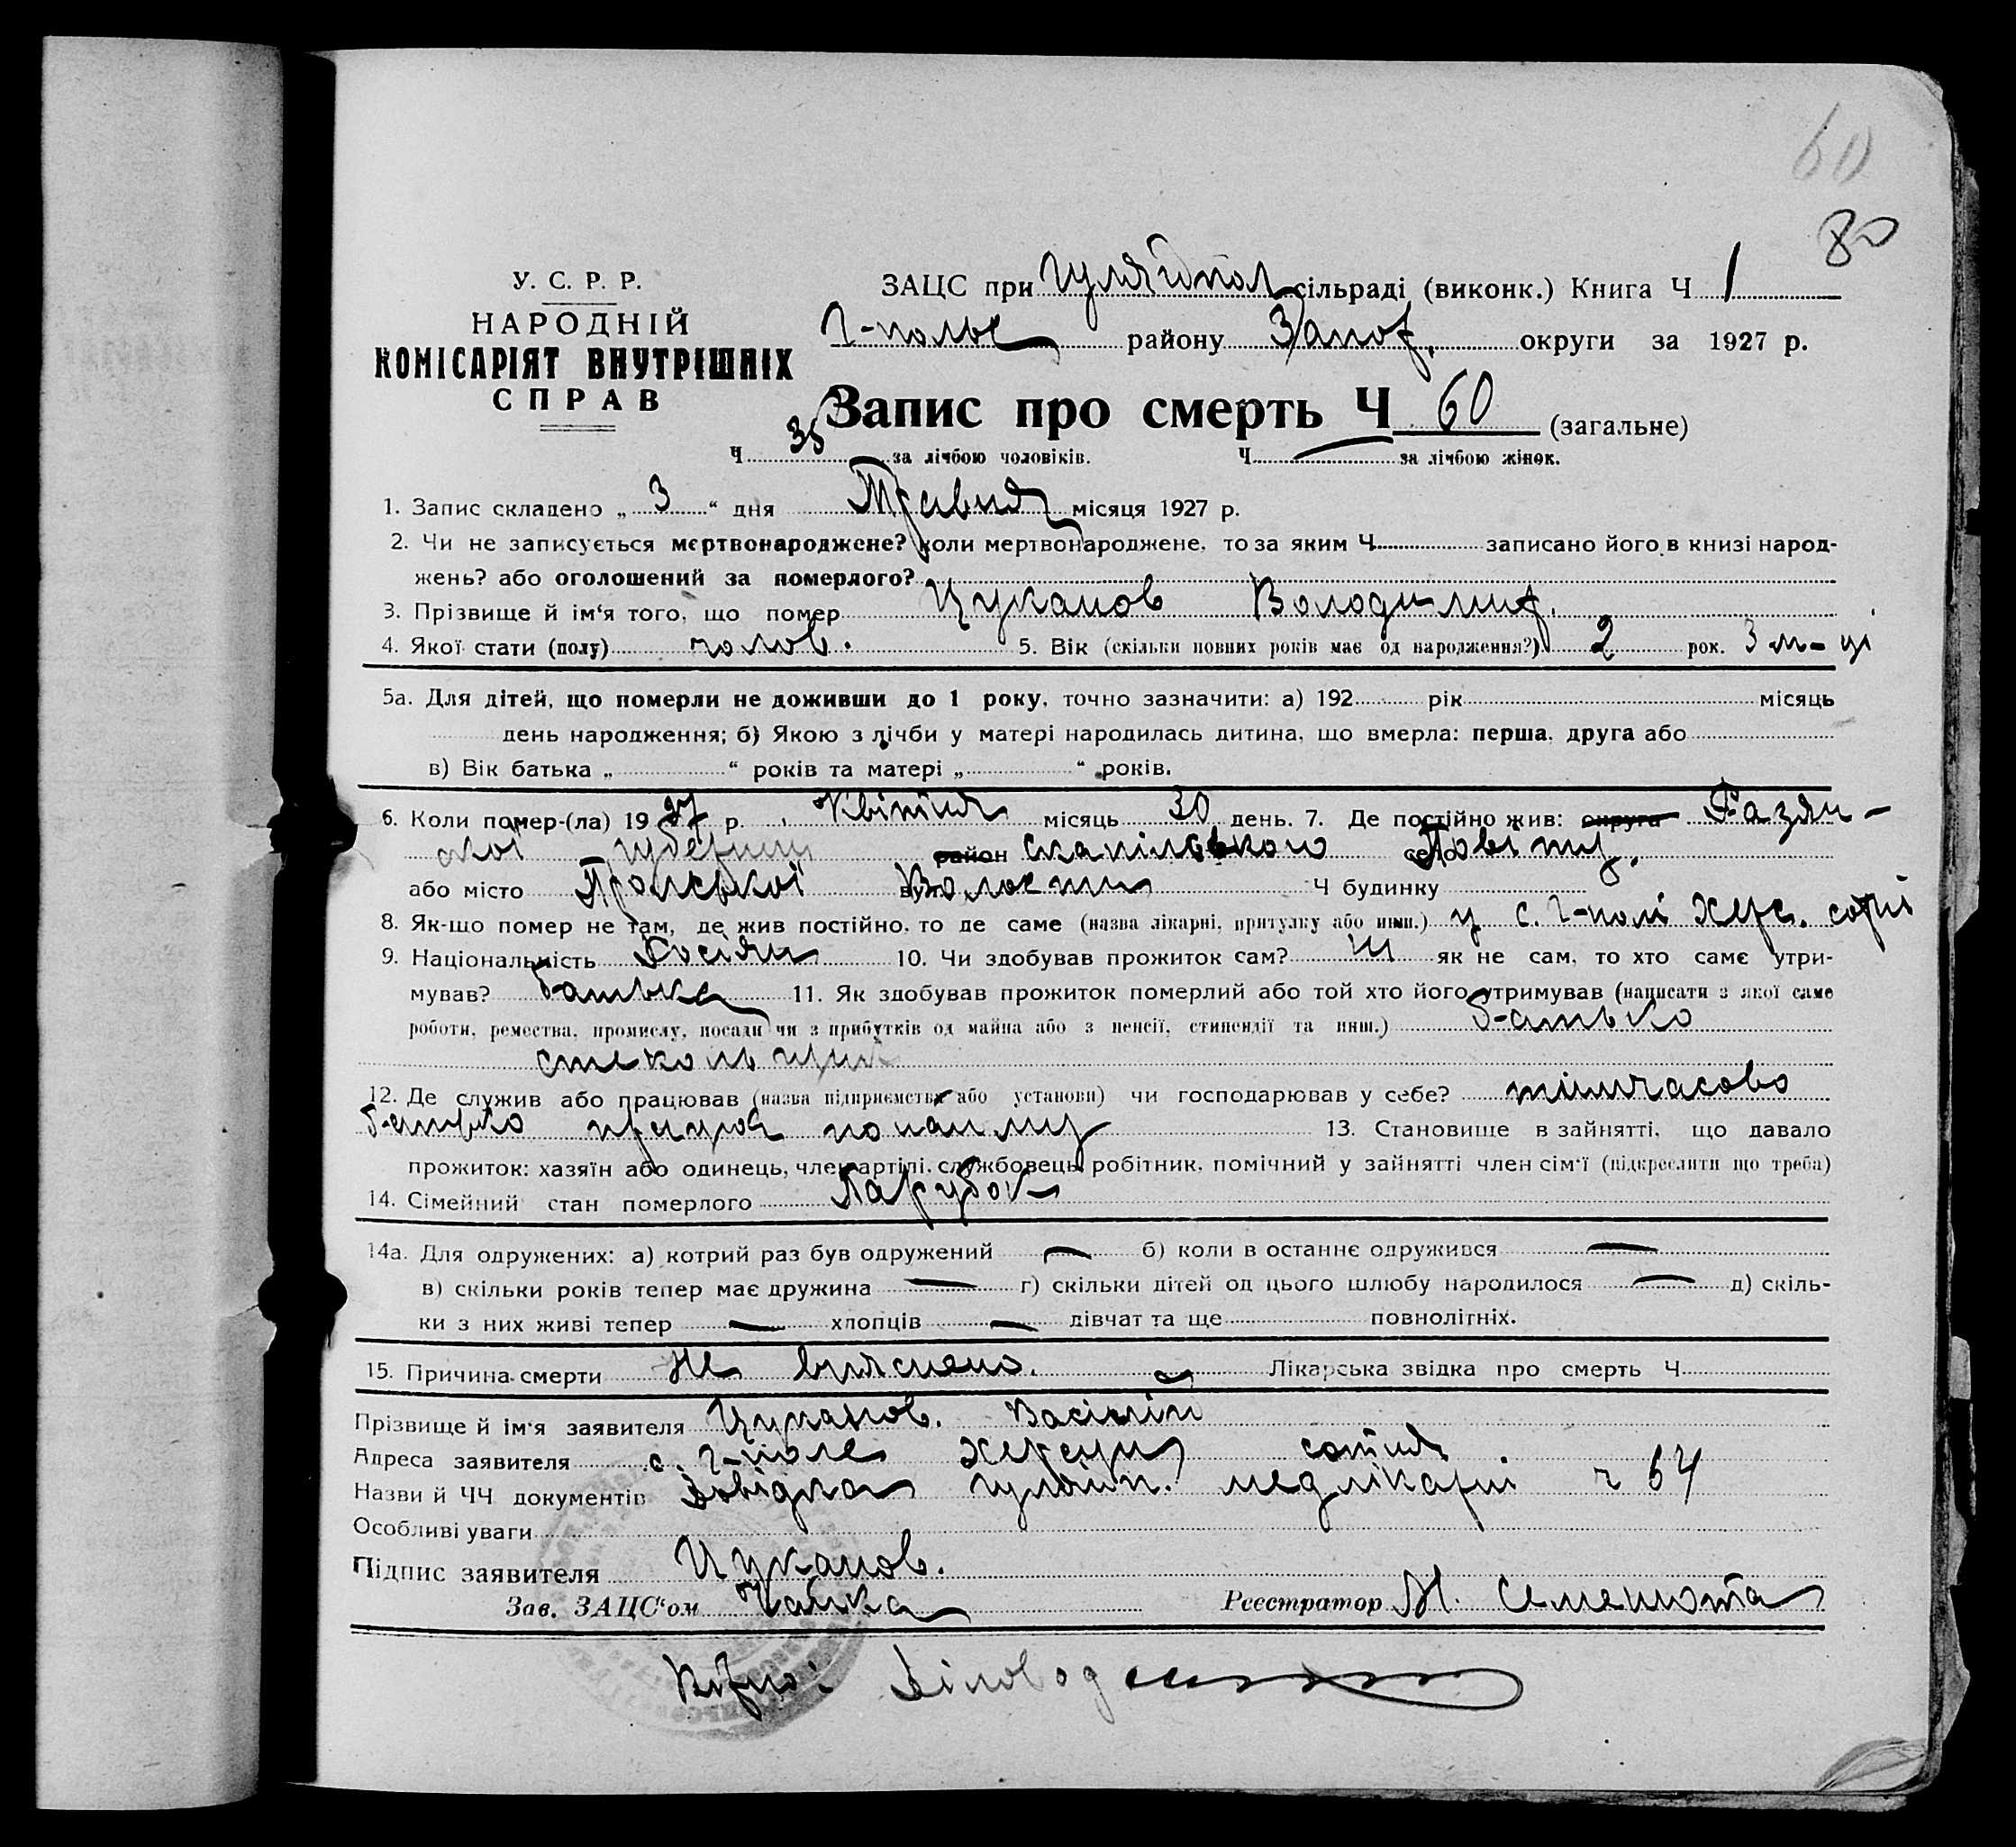 60
80
У. С. Р. Р.
НАРОДНІЙ
КОМІСАРІЯТ ВНУТРІШНІХ
СПРАВ
ЗАЦС при Гуляйпол сільраді (виконк.) Книга Ч 1
Г-полье району Запор. округи за 1927 р.
Запис про смерть Ч 60 (загальне)
Ч 35 за лічбою чоловіків. Ч — за лічбою жінок.
1. Запис складено „ 3 “ дня Травня місяця 1927 р.
2. Чи не записується мертвонароджене? коли мертвонароджене, то за яким Ч записано його в книзі народ-
жень? або оголошений за померлого?
3. Прізвище й ім‘я того, що помер Цуканов Володимир.
4. Якої стати (полу) чолов. 5. Вік (скільки повних років має од народження?) 2 рок. 3 м-ці
5а. Для дітей, що померли не доживши до 1 року, точно зазначити: а) 192 рік місяць
день народження; б) Якою з лічби у матері народилась дитина, що вмерла: перша, друга або
в) Вік батька „ “ років та матері „ “ років.
6. Коли помер-(ла) 1927 р. Квітня місяць 30 день. 7. Де постійно жив: округа Разян-
ської губернии район село Повіту.
або місто вул. Волости Ч будинку
8. Як-що помер не там, де жив постійно, то де саме (назва лікарні, притулку або инш.) у с. Г-полі Херс. сотні
9. Національність Росіян 10. Чи здобував прожиток сам? ні як не сам, то хто саме утри-
мував? батько 11. Як здобував прожиток померлий або той хто його утримував (написати з якої саме
роботи, ремества, промислу, посади чи з прибутків од майна або з пенсії, стипендії та инш.) батько
стекольщик
12. Де служив або працював (назва підприємства або установи) чи господарював у себе? тімчасово
батько працює по найму 13. Становище в зайнятті, що давало
прожиток: хазяїн або одинець, член артілі, службовець, робітник, помічний у зайнятті член сім‘ї (підкреслити що треба)
14. Сімейний стан померлого Парубок
14а. Для одружених: а) котрий раз був одружений — б) коли в останнє одружився —
в) скільки років тепер має дружина — г) скільки дітей од цього шлюбу народилося — д) скіль-
ки з них живі тепер — хлопців — дівчат та ще повнолітніх.
15. Причина смерти Не вияснено. Лікарська звідка про смерть Ч
Прізвище й ім‘я заявителя Цуканов. Васілій
Адреса заявителя с. Г-поле Херсон сотня
Назви й ЧЧ документів Довідка Гуляйп. медлікарні ч 64
Особливі уваги
Підпис заявителя Цуканов.
Зав. ЗАЦС‘ом Чайка Реєстратор М. Семенюта
Вірно: